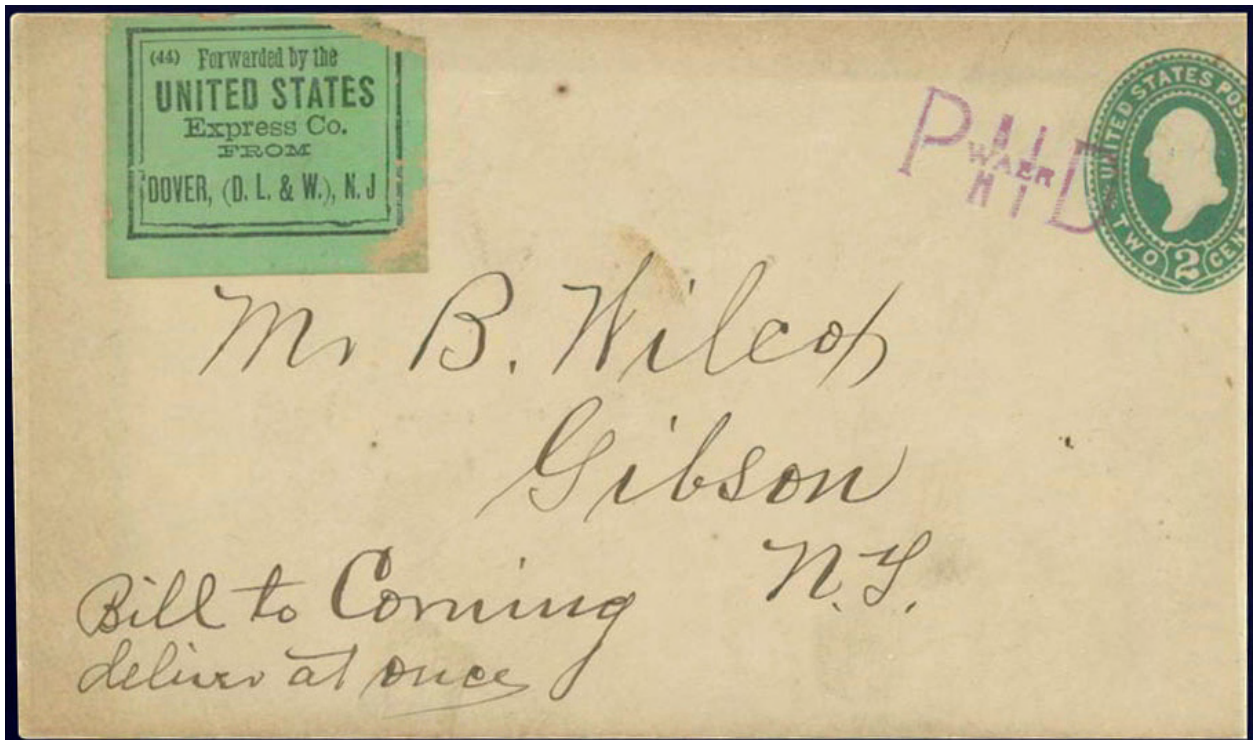 (44) Forwarded by the
UNITED STATES
Express Co.
FROM
DOVER, (D. L. & W.), N. J
PAID
UNITED STATES POST
TWO 2 CEN
Mr B. Wilcox
Gibson
N.Y.
Bill to Corning
deliver at once